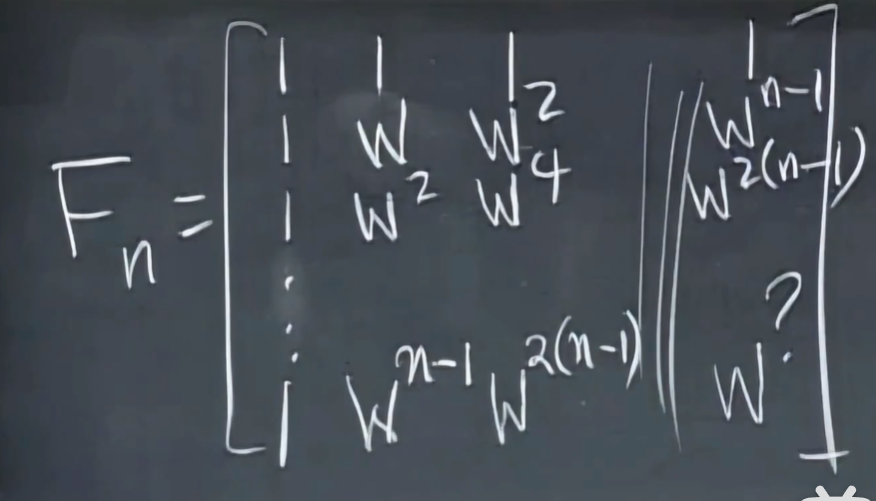 1 1 1 1
1 W W² Wⁿ⁻¹
Fₙ = 1 W² W⁴ W²⁽ⁿ⁻¹⁾
⋮
1 Wⁿ⁻¹ W²⁽ⁿ⁻¹⁾ W^?